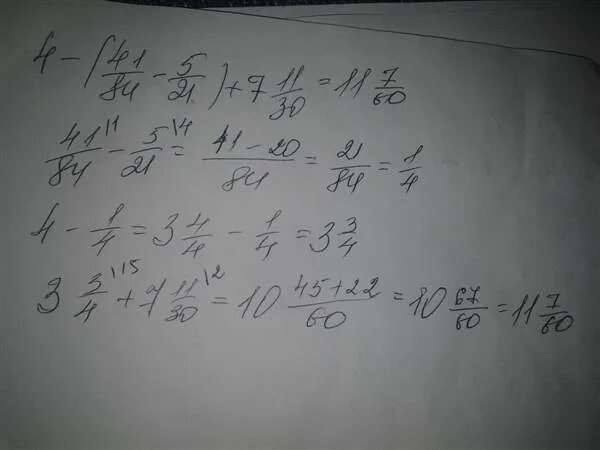 4 - (41/84 - 5/21) + 7 11/30 = 11 7/60
41/84 \1 - 5/21 \4 = 41-20/84 = 21/84 = 1/4
4 - 1/4 = 3 4/4 - 1/4 = 3 3/4
3 3/4 \15 + 7 11/30 \2 = 10 45+22/60 = 10 67/60 = 11 7/60